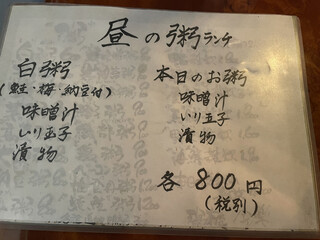 昼の粥ランチ
白粥
(鮭・梅・納豆付)
味噌汁
いり玉子
漬物
本日のお粥
味噌汁
いり玉子
漬物
各800円
(税別)